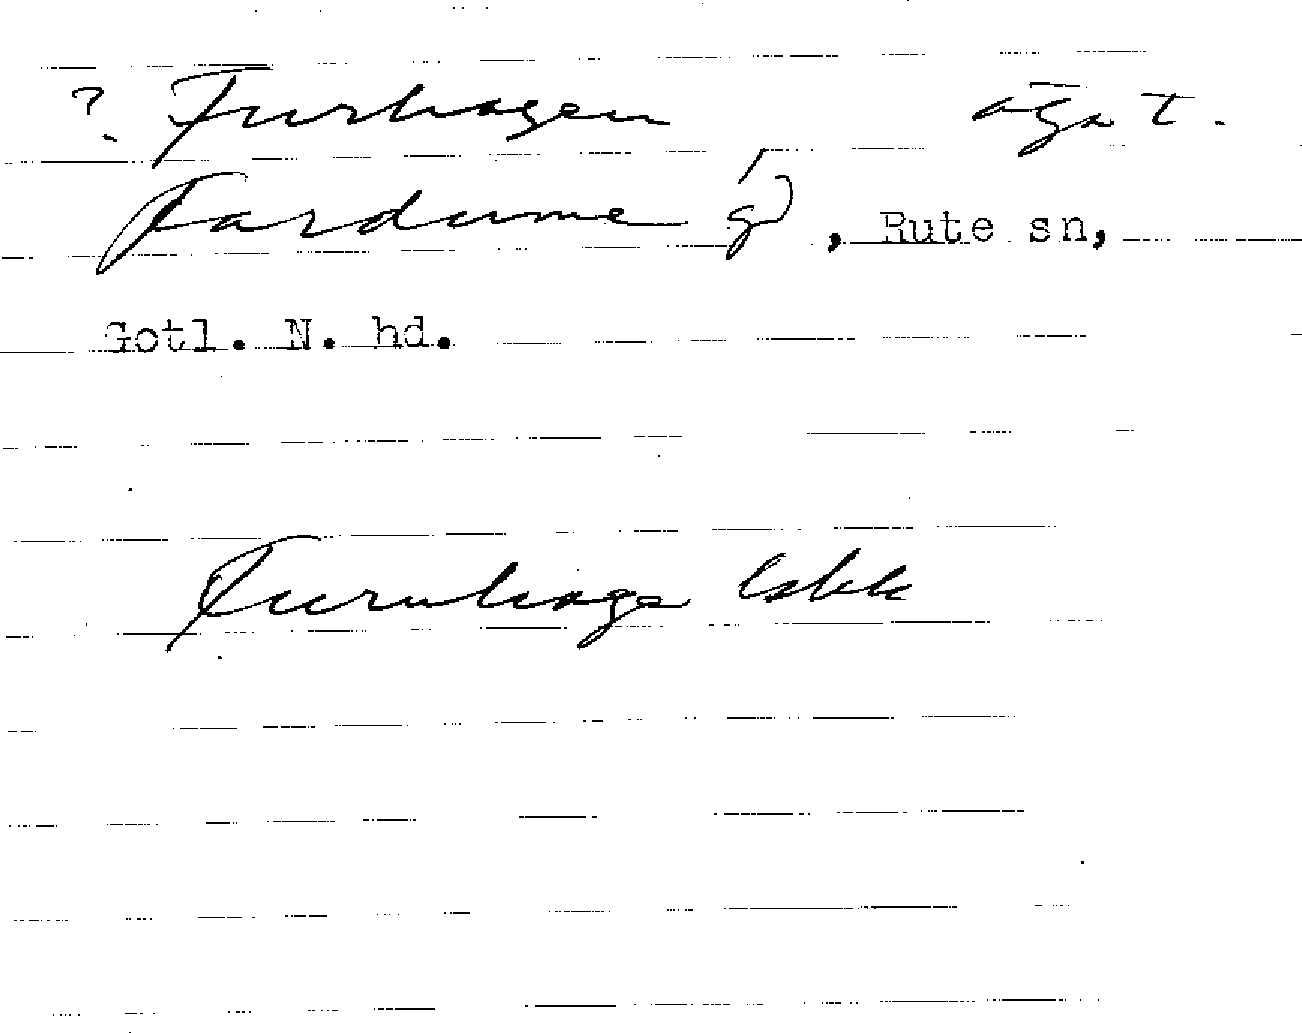 ? Furhagen ägot.
Fardume gd, Rute sn,
Gotl. N. hd.
Furuhage lskk